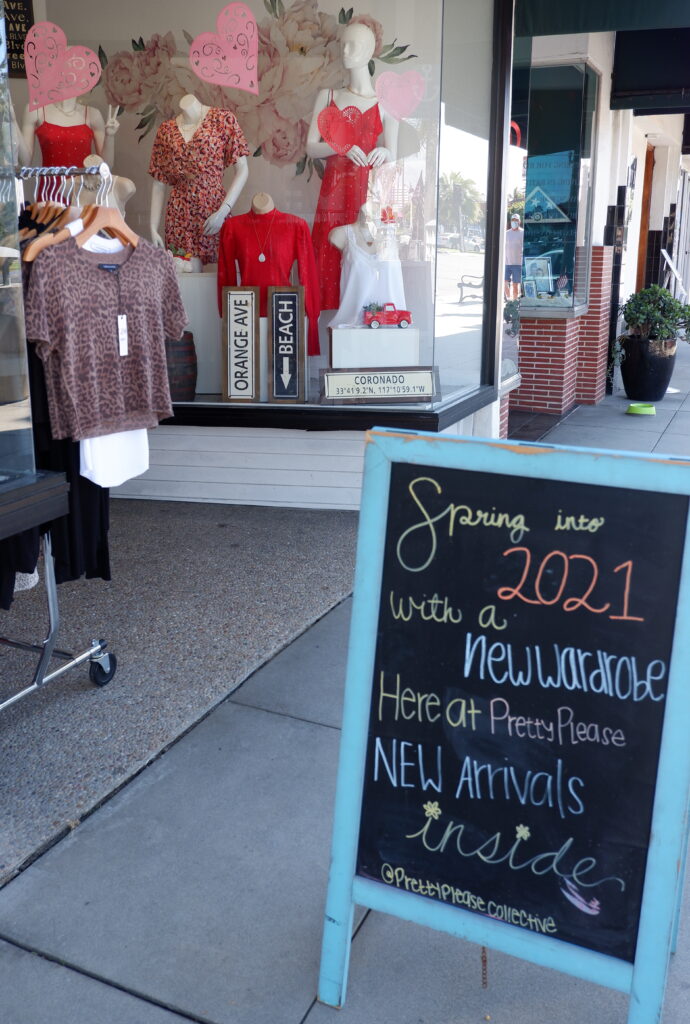 Ave.
BLVD.
AVE.
Blvd
ORANGE AVE
BEACH
CORONADO
33°41'9.2"N, 117°10'59.1"W
Spring into
2021
with a
new wardrobe
Here at PrettyPlease
NEW Arrivals
inside
@PrettyPleasecollective